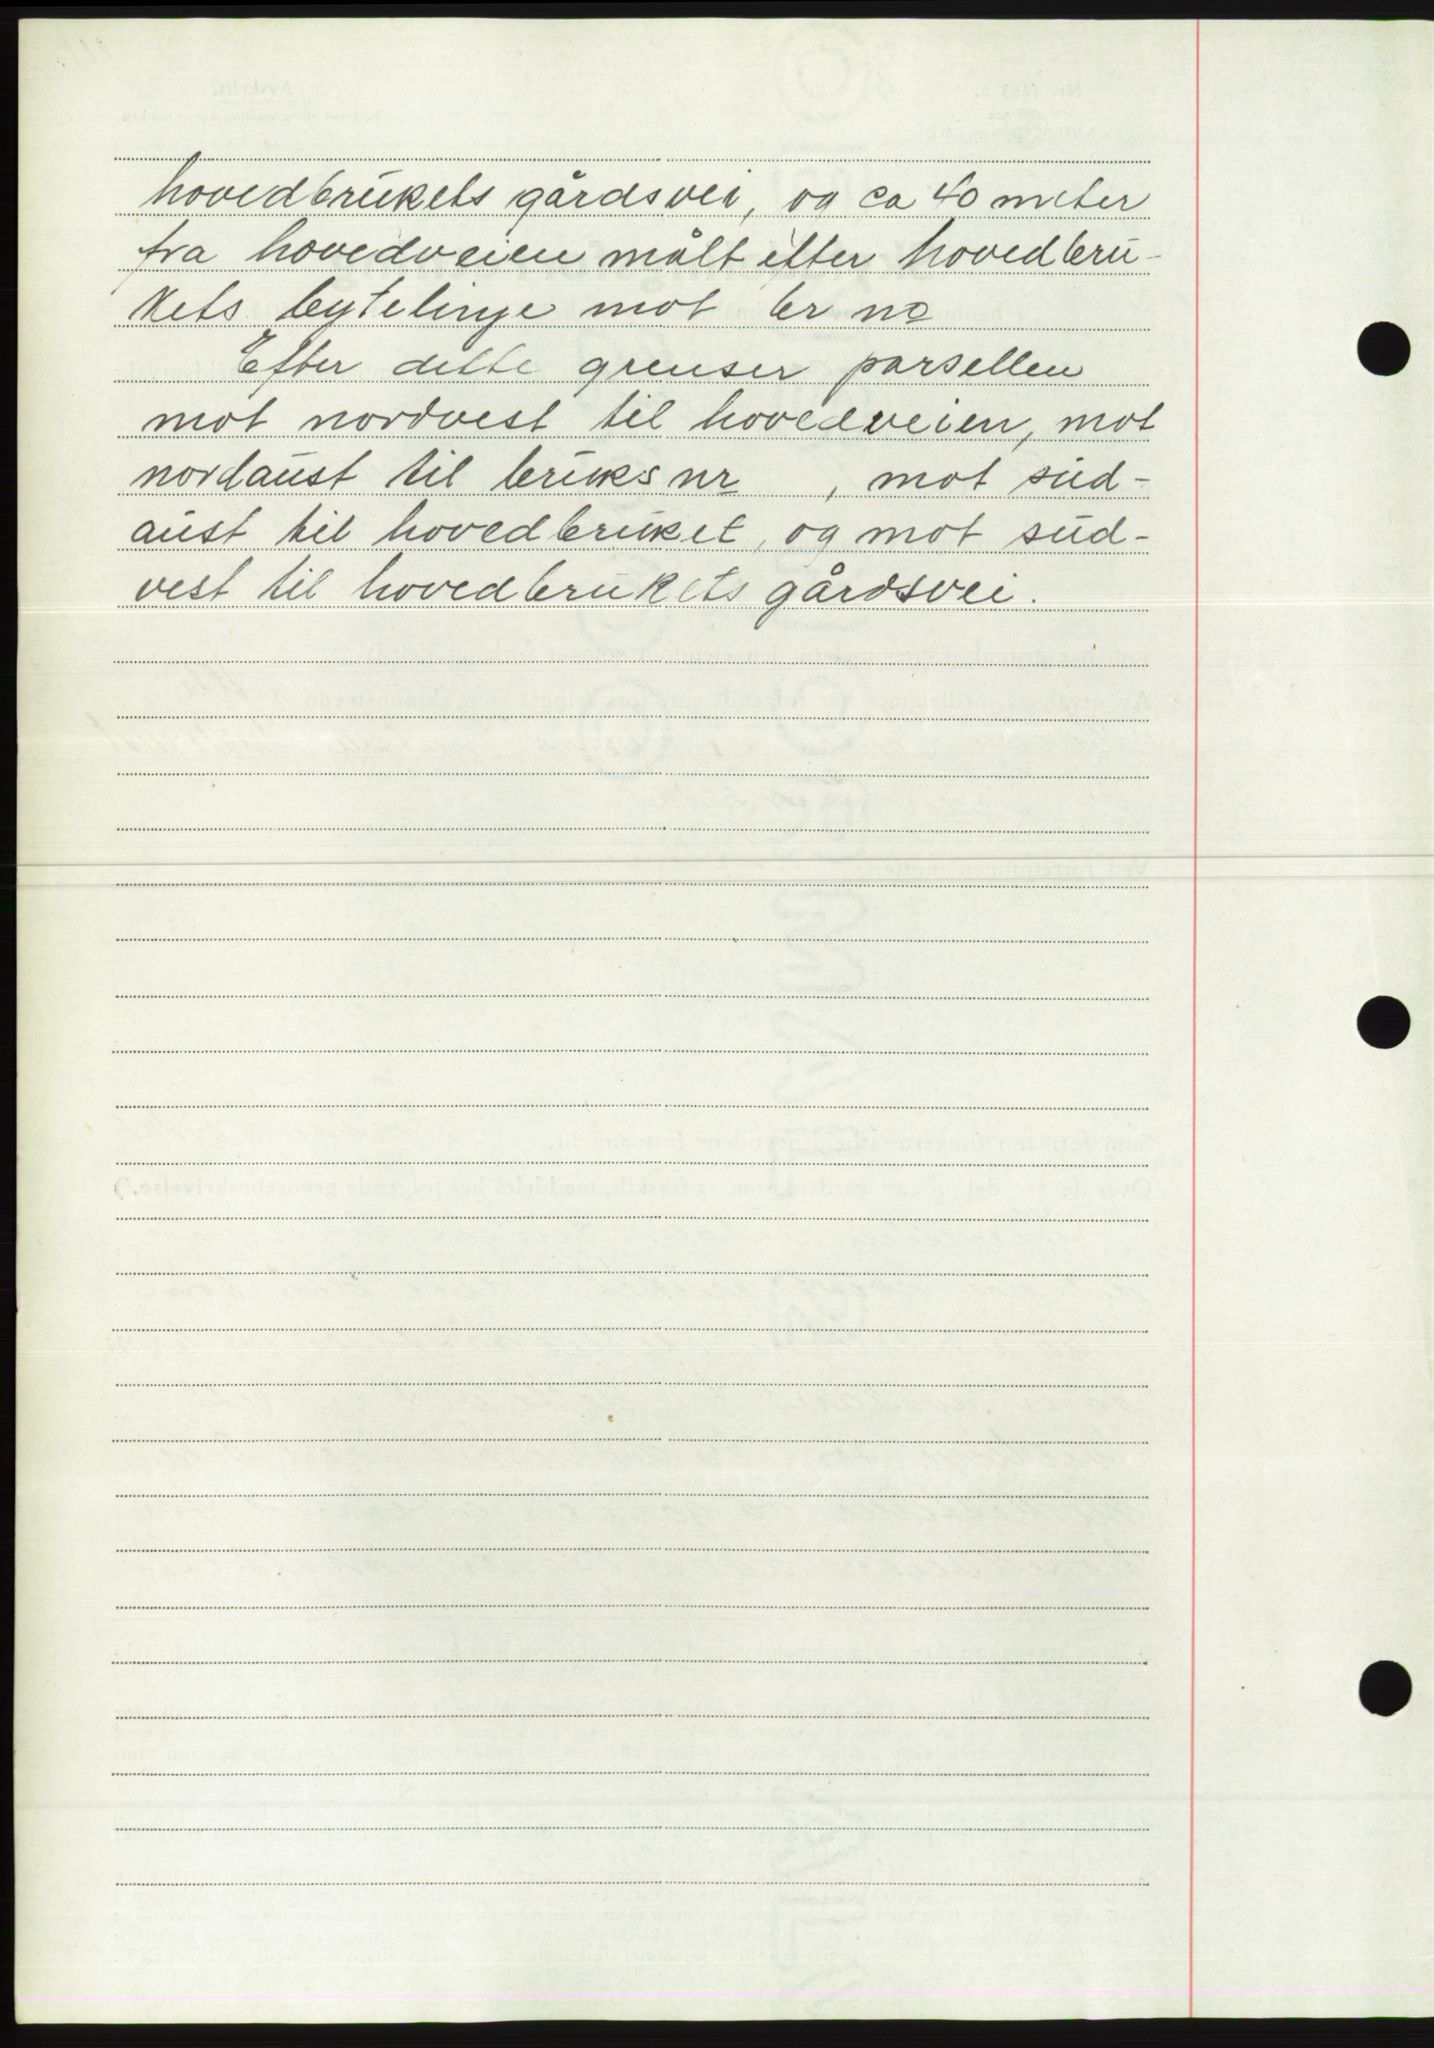 hovedbrukets gårdsvei, og ca 40 meter
fra hovedveien målt efter hovedbru-
kets bytelinje mot br no
Efter dette grenser parsellen
mot nordvest til hovedveien, mot
nordaust til bruks nr , mot sud-
aust til hovedbruket, og mot sud-
vest til hovedbrukets gårdsvei.